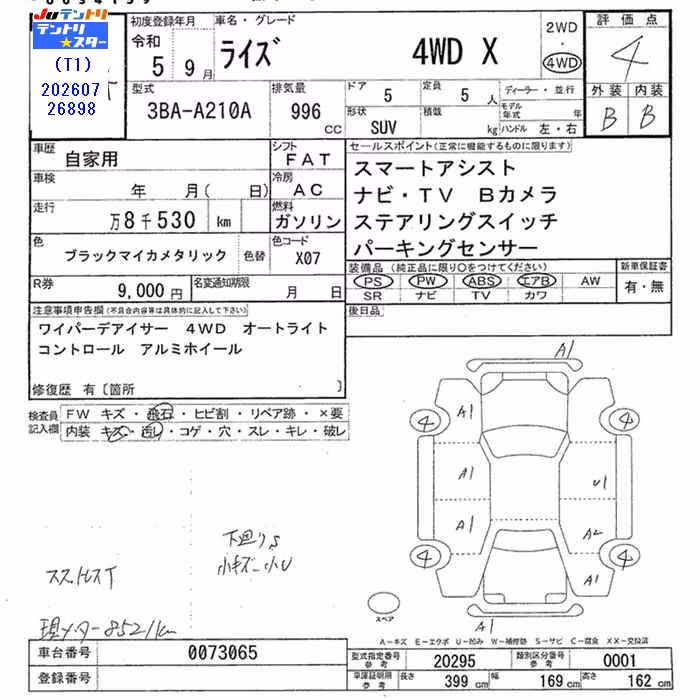 JU テントリ
テントリ★スター
(T1)
202607
26898
初度登録年月
令和
5 9月
車名・グレード
ライズ 4WD X
2WD
・
4WD
評価点
4
外装 内装
B B
型式
3BA-A210A
排気量
996
cc
ドア
5
定員
5 人
形状
SUV
積載
kg
ディーラー・並行
モデル年式 年
ハンドル 左・右
車歴
自家用
シフト
FAT
車検
年 月( 日)
冷房
AC
走行
万8千530 km
燃料
ガソリン
色
ブラックマイカメタリック
色替
色コード
X07
R券
9,000円
名変通知期限
月 日
セールスポイント(正常に機能するものに限ります)
スマートアシスト
ナビ・TV Bカメラ
ステアリングスイッチ
パーキングセンサー
装備品 (純正品に限り○をつけてください)
PS PW ABS エアB AW
SR ナビ TV カワ
新車保証書
有・無
後日品
注意事項申告欄(不具合内容等は具体的に記入して下さい)
ワイパーデアイサー 4WD オートライト
コントロール アルミホイール
修復歴 有〔箇所 〕
検査員
記入欄
FW キズ・飛石・ヒビ割・リペア跡・×要
内装 キズ・汚レ・コゲ・穴・スレ・キレ・破レ
下廻りS
小キズ 小U
スタッドレスT
現メーター 8521km
A1
A1
4
4
A1
U1
A1
A2
4
4
A1
A1
スペア
A-キズ E-エクボ U-凹み W-補修跡 S-サビ C-腐食 XX-交換済
車台番号
0073065
登録番号
型式指定番号
参考
20295
類別区分番号
参考
0001
車庫証明用
参考
長さ
399 cm
幅
169 cm
高さ
162 cm